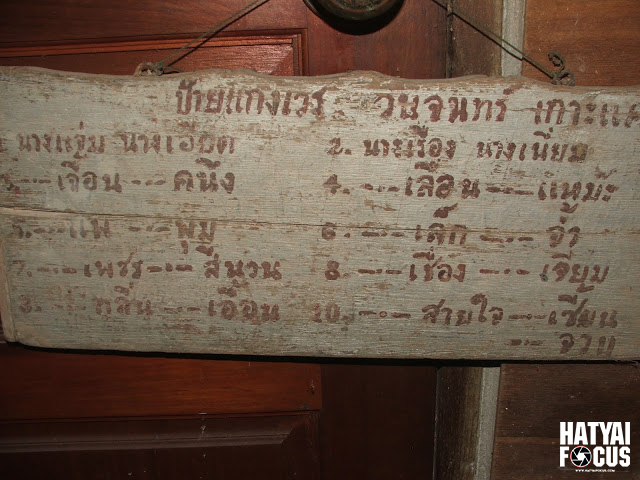 ป้ายแกงเวร วันจันทร์ เกาะแ
นางแจ่ม นางเอียด 2. นางเรือง นางเนียม
-·- เจือน -·- คนึง 4. -·- เลื่อน -·-
5. -·- แพ -·- พุม 6. -·- เล็ก -·- จ้ำ
7. -·- เพชร -·- สีนวน 8. -·- เชือง -·- เจียม
กลิ่น -·- เอื้อม 10. -·- สายใจ -·- เซี่ยน
-·- จวบ
HATYAI
FOCUS
WWW.HATYAIFOCUS.COM